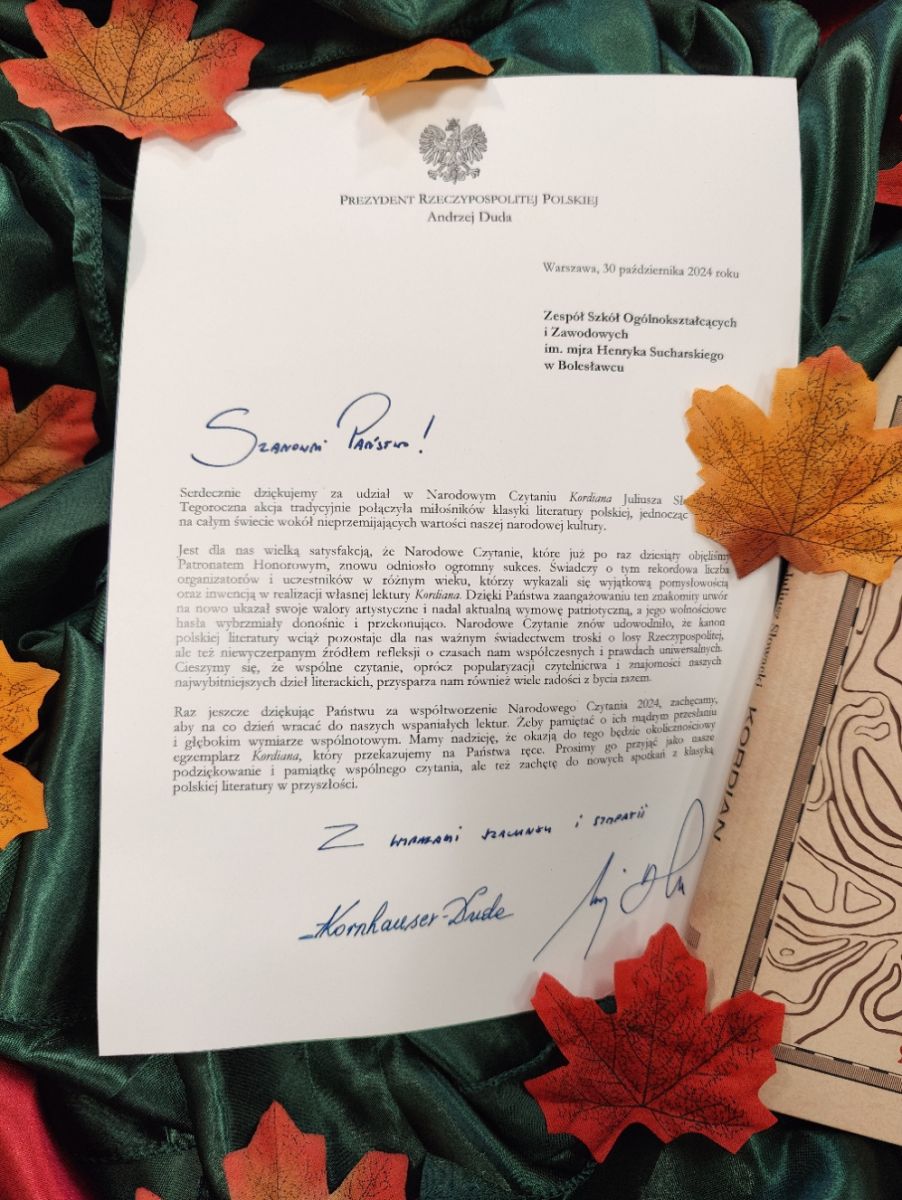 PREZYDENT RZECZYPOSPOLITEJ POLSKIEJ
Andrzej Duda
Warszawa, 30 października 2024 roku
Zespół Szkół Ogólnokształcących
i Zawodowych
im. mjra Henryka Sucharskiego
w Bolesławcu
Szanowni Państwo!
Serdecznie dziękujemy za udział w Narodowym Czytaniu Kordiana Juliusza
Tegoroczna akcja tradycyjnie połączyła miłośników klasyki literatury polskiej, jednocząc
na całym świecie wokół nieprzemijających wartości naszej narodowej kultury.
Jest dla nas wielką satysfakcją, że Narodowe Czytanie, które już po raz dziesiąty objęliśmy
Patronatem Honorowym, znowu odniosło ogromny sukces. Świadczy o tym rekordowa liczba
organizatorów i uczestników w różnym wieku, którzy wykazali się wyjątkową pomysłowością
oraz inwencją w realizacji własnej lektury Kordiana. Dzięki Państwa zaangażowaniu ten znakomity utwór
na nowo ukazał swoje walory artystyczne i nadal aktualną wymowę patriotyczną, a jego wolnościowe
hasła wybrzmiały donośnie i przekonująco. Narodowe Czytanie znów udowodniło, że kanon
polskiej literatury wciąż pozostaje dla nas ważnym świadectwem troski o losy Rzeczypospolitej,
ale też niewyczerpanym źródłem refleksji o czasach nam współczesnych i prawdach uniwersalnych.
Cieszymy się, że wspólne czytanie, oprócz popularyzacji czytelnictwa i znajomości naszych
najwybitniejszych dzieł literackich, przysparza nam również wiele radości z bycia razem.
Raz jeszcze dziękując Państwu za współtworzenie Narodowego Czytania 2024, zachęcamy,
aby na co dzień wracać do naszych wspaniałych lektur. Żeby pamiętać o ich mądrym przesłaniu
i głębokim wymiarze wspólnotowym. Mamy nadzieję, że okazją do tego będzie okolicznościowy
egzemplarz Kordiana, który przekazujemy na Państwa ręce. Prosimy go przyjąć jako nasze
podziękowanie i pamiątkę wspólnego czytania, ale też zachętę do nowych spotkań z klasyką
polskiej literatury w przyszłości.
Z wyrazami szacunku i sympatii
Kornhauser-Duda
Juliusz Słowacki KORDIAN